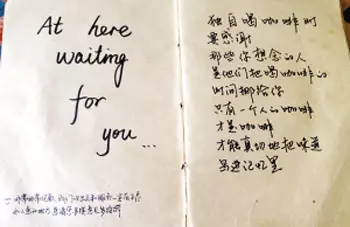 At here
waiting
for
you...
独自喝咖啡时
要感谢
那些你想念的人
是他们把喝咖啡的
时间挪给你
只有一个人的咖啡
才是咖啡
才能真切地把味道
写进记忆里